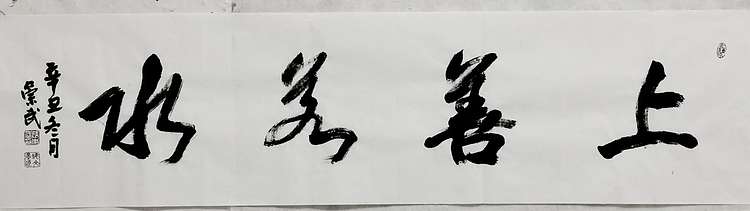 上善若水
辛丑冬月
崇武